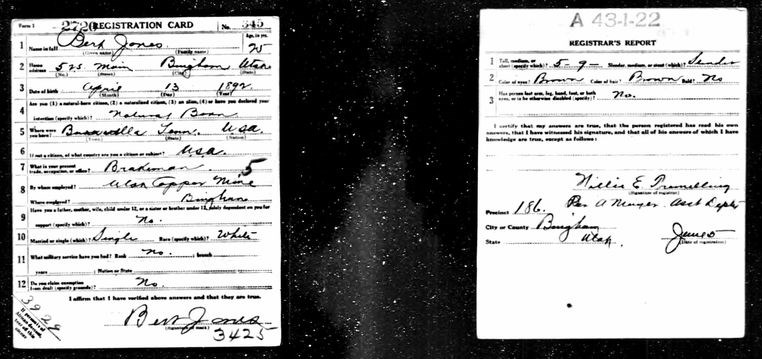 Form 1 2720 REGISTRATION CARD No. 345
1 Name in full Bert Jones Age, in yrs. 25
(Given name) (Family name)
2 Home address 525 Main Bingham Utah
(No.) (Street) (City) (State)
3 Date of birth April 13 1892
(Month) (Day) (Year)
4 Are you (1) a natural-born citizen, (2) a naturalized citizen, (3) an alien, (4) or have you declared your
intention (specify which)? Natural Born
5 Where were you born? Tenn. USA
(Town) (State) (Nation)
6 If not a citizen, of what country are you a citizen or subject? USA.
7 What is your present trade, occupation, or office? Brakeman 5
8 By whom employed? Utah Copper Mine
Where employed? Bingham
9 Have you a father, mother, wife, child under 12, or a sister or brother under 12, solely dependent on you for
support (specify which)? No.
10 Married or single (which)? Single Race (specify which)? White
11 What military service have you had? Rank No. ; branch
years ; Nation or State
12 Do you claim exemption from draft (specify grounds)? No
I affirm that I have verified above answers and that they are true.
Bert Jones
(Signature or mark)
3425
3929
A 43-1-22
REGISTRAR'S REPORT
1 Tall, medium, or short (specify which)? 5-9- Slender, medium, or stout (which)? Slender
2 Color of eyes? Brown Color of hair? Brown Bald? No
3 Has person lost arm, leg, hand, foot, or both eyes, or is he otherwise disabled (specify)? No.
I certify that my answers are true, that the person registered has read his own
answers, that I have witnessed his signature, and that all of his answers of which I have
knowledge are true, except as follows:
Willis E.
(Signature of registrar)
Precinct 186. Per A
City or County Bingham
State Utah. June 5
(Date of registration)